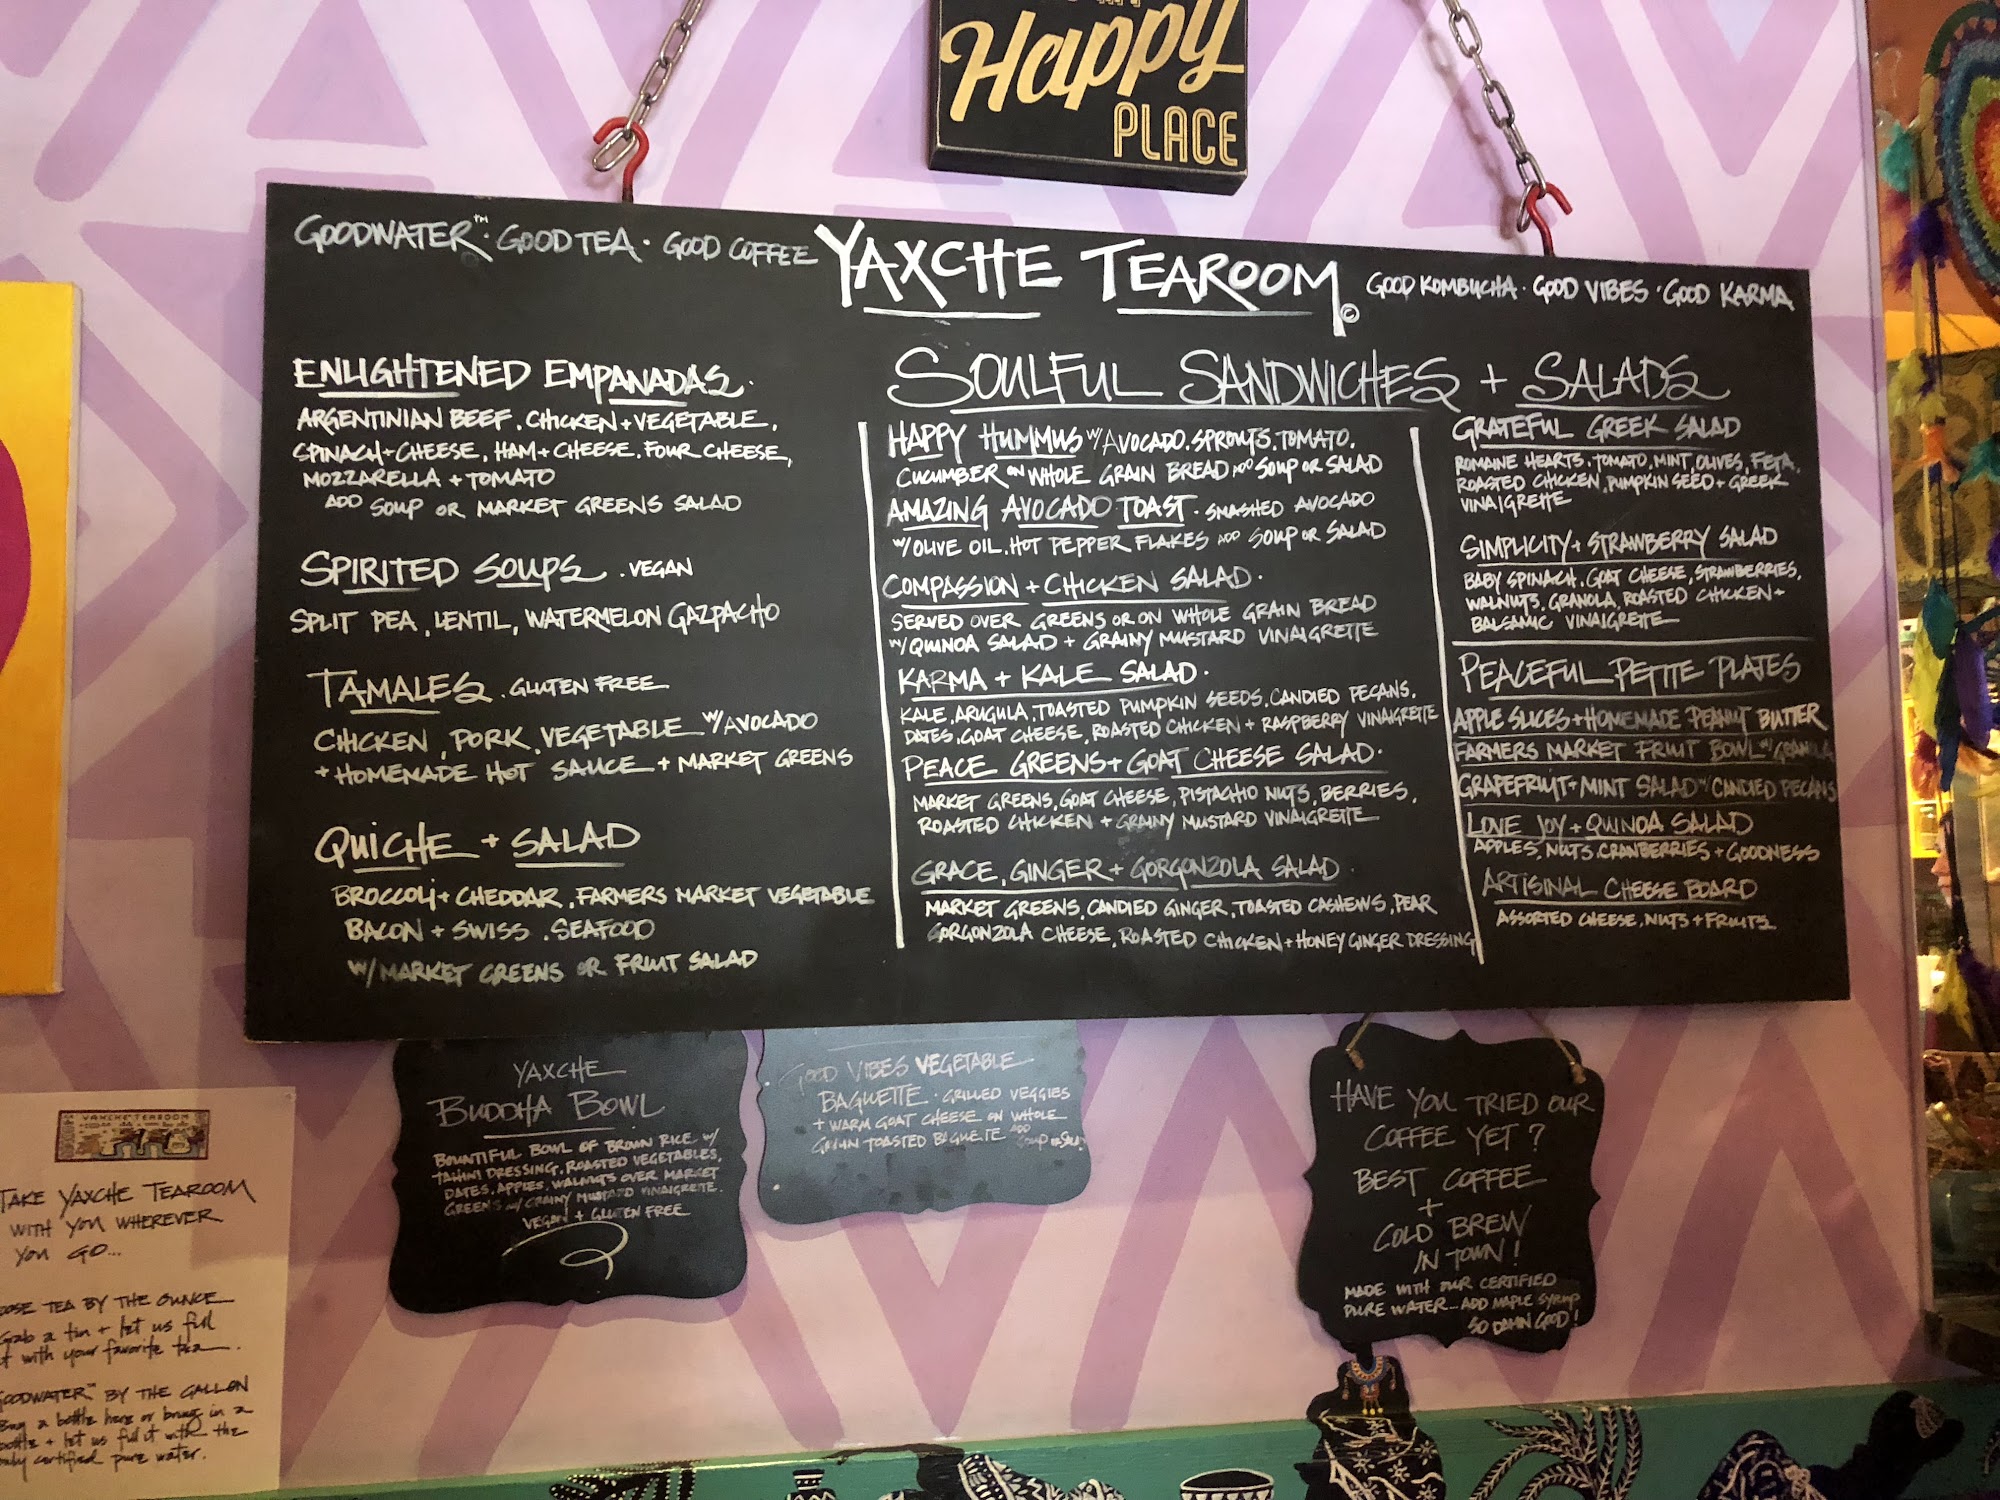 Happy
PLACE
GOODWATER™ · GOOD TEA · GOOD COFFEE
YAXCHE TEAROOM ©
GOOD KOMBUCHA · GOOD VIBES · GOOD KARMA
ENLIGHTENED EMPANADAS.
ARGENTINIAN BEEF. CHICKEN + VEGETABLE,
SPINACH + CHEESE, HAM + CHEESE. FOUR CHEESE,
MOZZARELLA + TOMATO
ADD SOUP OR MARKET GREENS SALAD
SPIRITED SOUPS . VEGAN
SPLIT PEA, LENTIL, WATERMELON GAZPACHO
TAMALES . GLUTEN FREE
CHICKEN, PORK, VEGETABLE W/AVOCADO
+ HOMEMADE HOT SAUCE + MARKET GREENS
QUICHE + SALAD
BROCCOLI + CHEDDAR, FARMERS MARKET VEGETABLE
BACON + SWISS . SEAFOOD
W/MARKET GREENS OR FRUIT SALAD
SOULFUL SANDWICHES + SALADS
HAPPY HUMMUS W/AVOCADO. SPROUTS. TOMATO.
CUCUMBER ON WHOLE GRAIN BREAD ADD SOUP OR SALAD
AMAZING AVOCADO TOAST · SMASHED AVOCADO
W/OLIVE OIL. HOT PEPPER FLAKES ADD SOUP OR SALAD
COMPASSION + CHICKEN SALAD.
SERVED OVER GREENS OR ON WHOLE GRAIN BREAD
W/QUINOA SALAD + GRAINY MUSTARD VINAIGRETTE
KARMA + KALE SALAD.
KALE, ARUGULA, TOASTED PUMPKIN SEEDS, CANDIED PECANS,
DATES, GOAT CHEESE, ROASTED CHICKEN + RASPBERRY VINAIGRETTE
PEACE GREENS + GOAT CHEESE SALAD.
MARKET GREENS, GOAT CHEESE, PISTACHIO NUTS, BERRIES,
ROASTED CHICKEN + GRAINY MUSTARD VINAIGRETTE
GRACE, GINGER + GORGONZOLA SALAD.
MARKET GREENS, CANDIED GINGER, TOASTED CASHEWS, PEAR
GORGONZOLA CHEESE, ROASTED CHICKEN + HONEY GINGER DRESSING
GRATEFUL GREEK SALAD
ROMAINE HEARTS, TOMATO, MINT, OLIVES, FETA,
ROASTED CHICKEN, PUMPKIN SEED + GREEK
VINAIGRETTE
SIMPLICITY + STRAWBERRY SALAD
BABY SPINACH, GOAT CHEESE, STRAWBERRIES,
WALNUTS, GRANOLA, ROASTED CHICKEN +
BALSAMIC VINAIGRETTE
PEACEFUL PETITE PLATES
APPLE SLICES + HOMEMADE PEANUT BUTTER
FARMERS MARKET FRUIT BOWL W/GRANOLA
GRAPEFRUIT + MINT SALAD W/CANDIED PECANS
LOVE JOY + QUINOA SALAD
APPLES, NUTS, CRANBERRIES + GOODNESS
ARTISINAL CHEESE BOARD
ASSORTED CHEESE, NUTS + FRUITS
YAXCHE
BUDDHA BOWL
BOUNTIFUL BOWL OF BROWN RICE W/
TAHINI DRESSING, ROASTED VEGETABLES,
DATES, APPLES, WALNUTS OVER MARKET
GREENS W/ GRAINY MUSTARD VINAIGRETTE.
VEGAN + GLUTEN FREE
GOOD VIBES VEGETABLE
BAGUETTE · GRILLED VEGGIES
+ WARM GOAT CHEESE ON WHOLE
GRAIN TOASTED BAGUETTE ADD SOUP OR SALAD
HAVE YOU TRIED OUR
COFFEE YET?
BEST COFFEE
+
COLD BREW
IN TOWN!
MADE WITH OUR CERTIFIED
PURE WATER... ADD MAPLE SYRUP
SO DAMN GOOD!
YAXCHE TEAROOM
TAKE YAXCHE TEAROOM
WITH YOU WHEREVER
YOU GO...
OOSE TEA BY THE OUNCE
Grab a tin + let us fill
it with your favorite tea.
GOODWATER™ BY THE GALLON
Buy a bottle here or bring in a
bottle + let us fill it with the
only certified pure water.